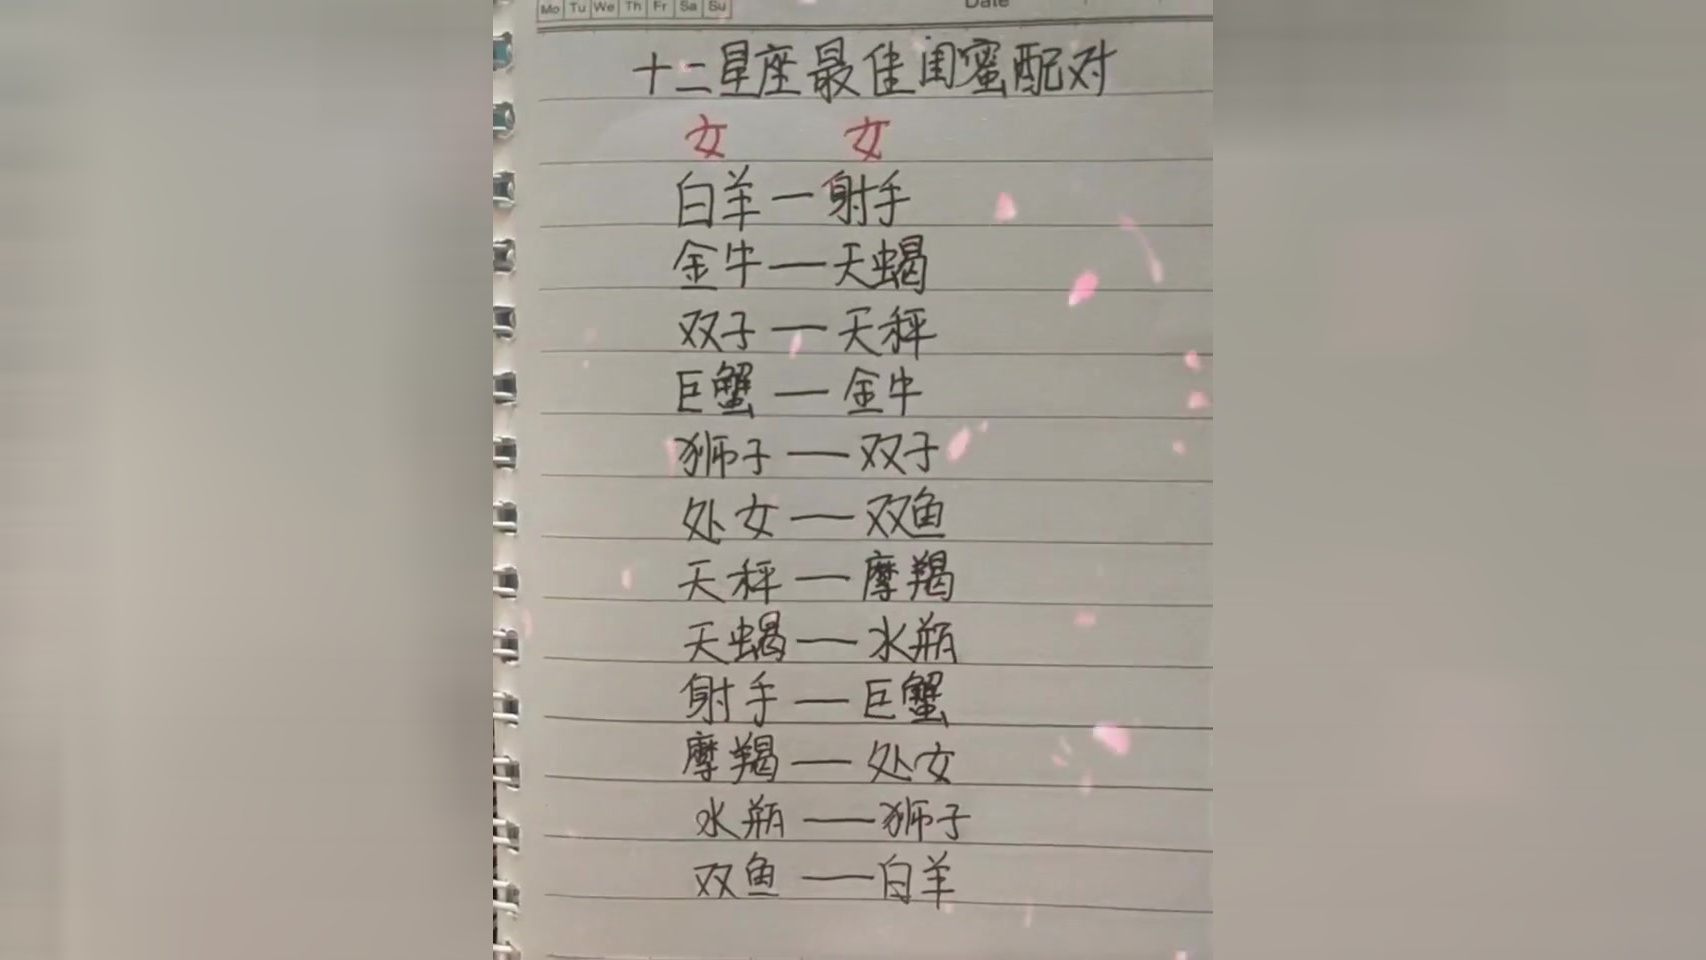 Mo Tu We Th Fr Sa Su
Date
十二星座最佳闺蜜配对
女 女
白羊—射手
金牛—天蝎
双子—天秤
巨蟹—金牛
狮子—双子
处女—双鱼
天秤—摩羯
天蝎—水瓶
射手—巨蟹
摩羯—处女
水瓶—狮子
双鱼—白羊